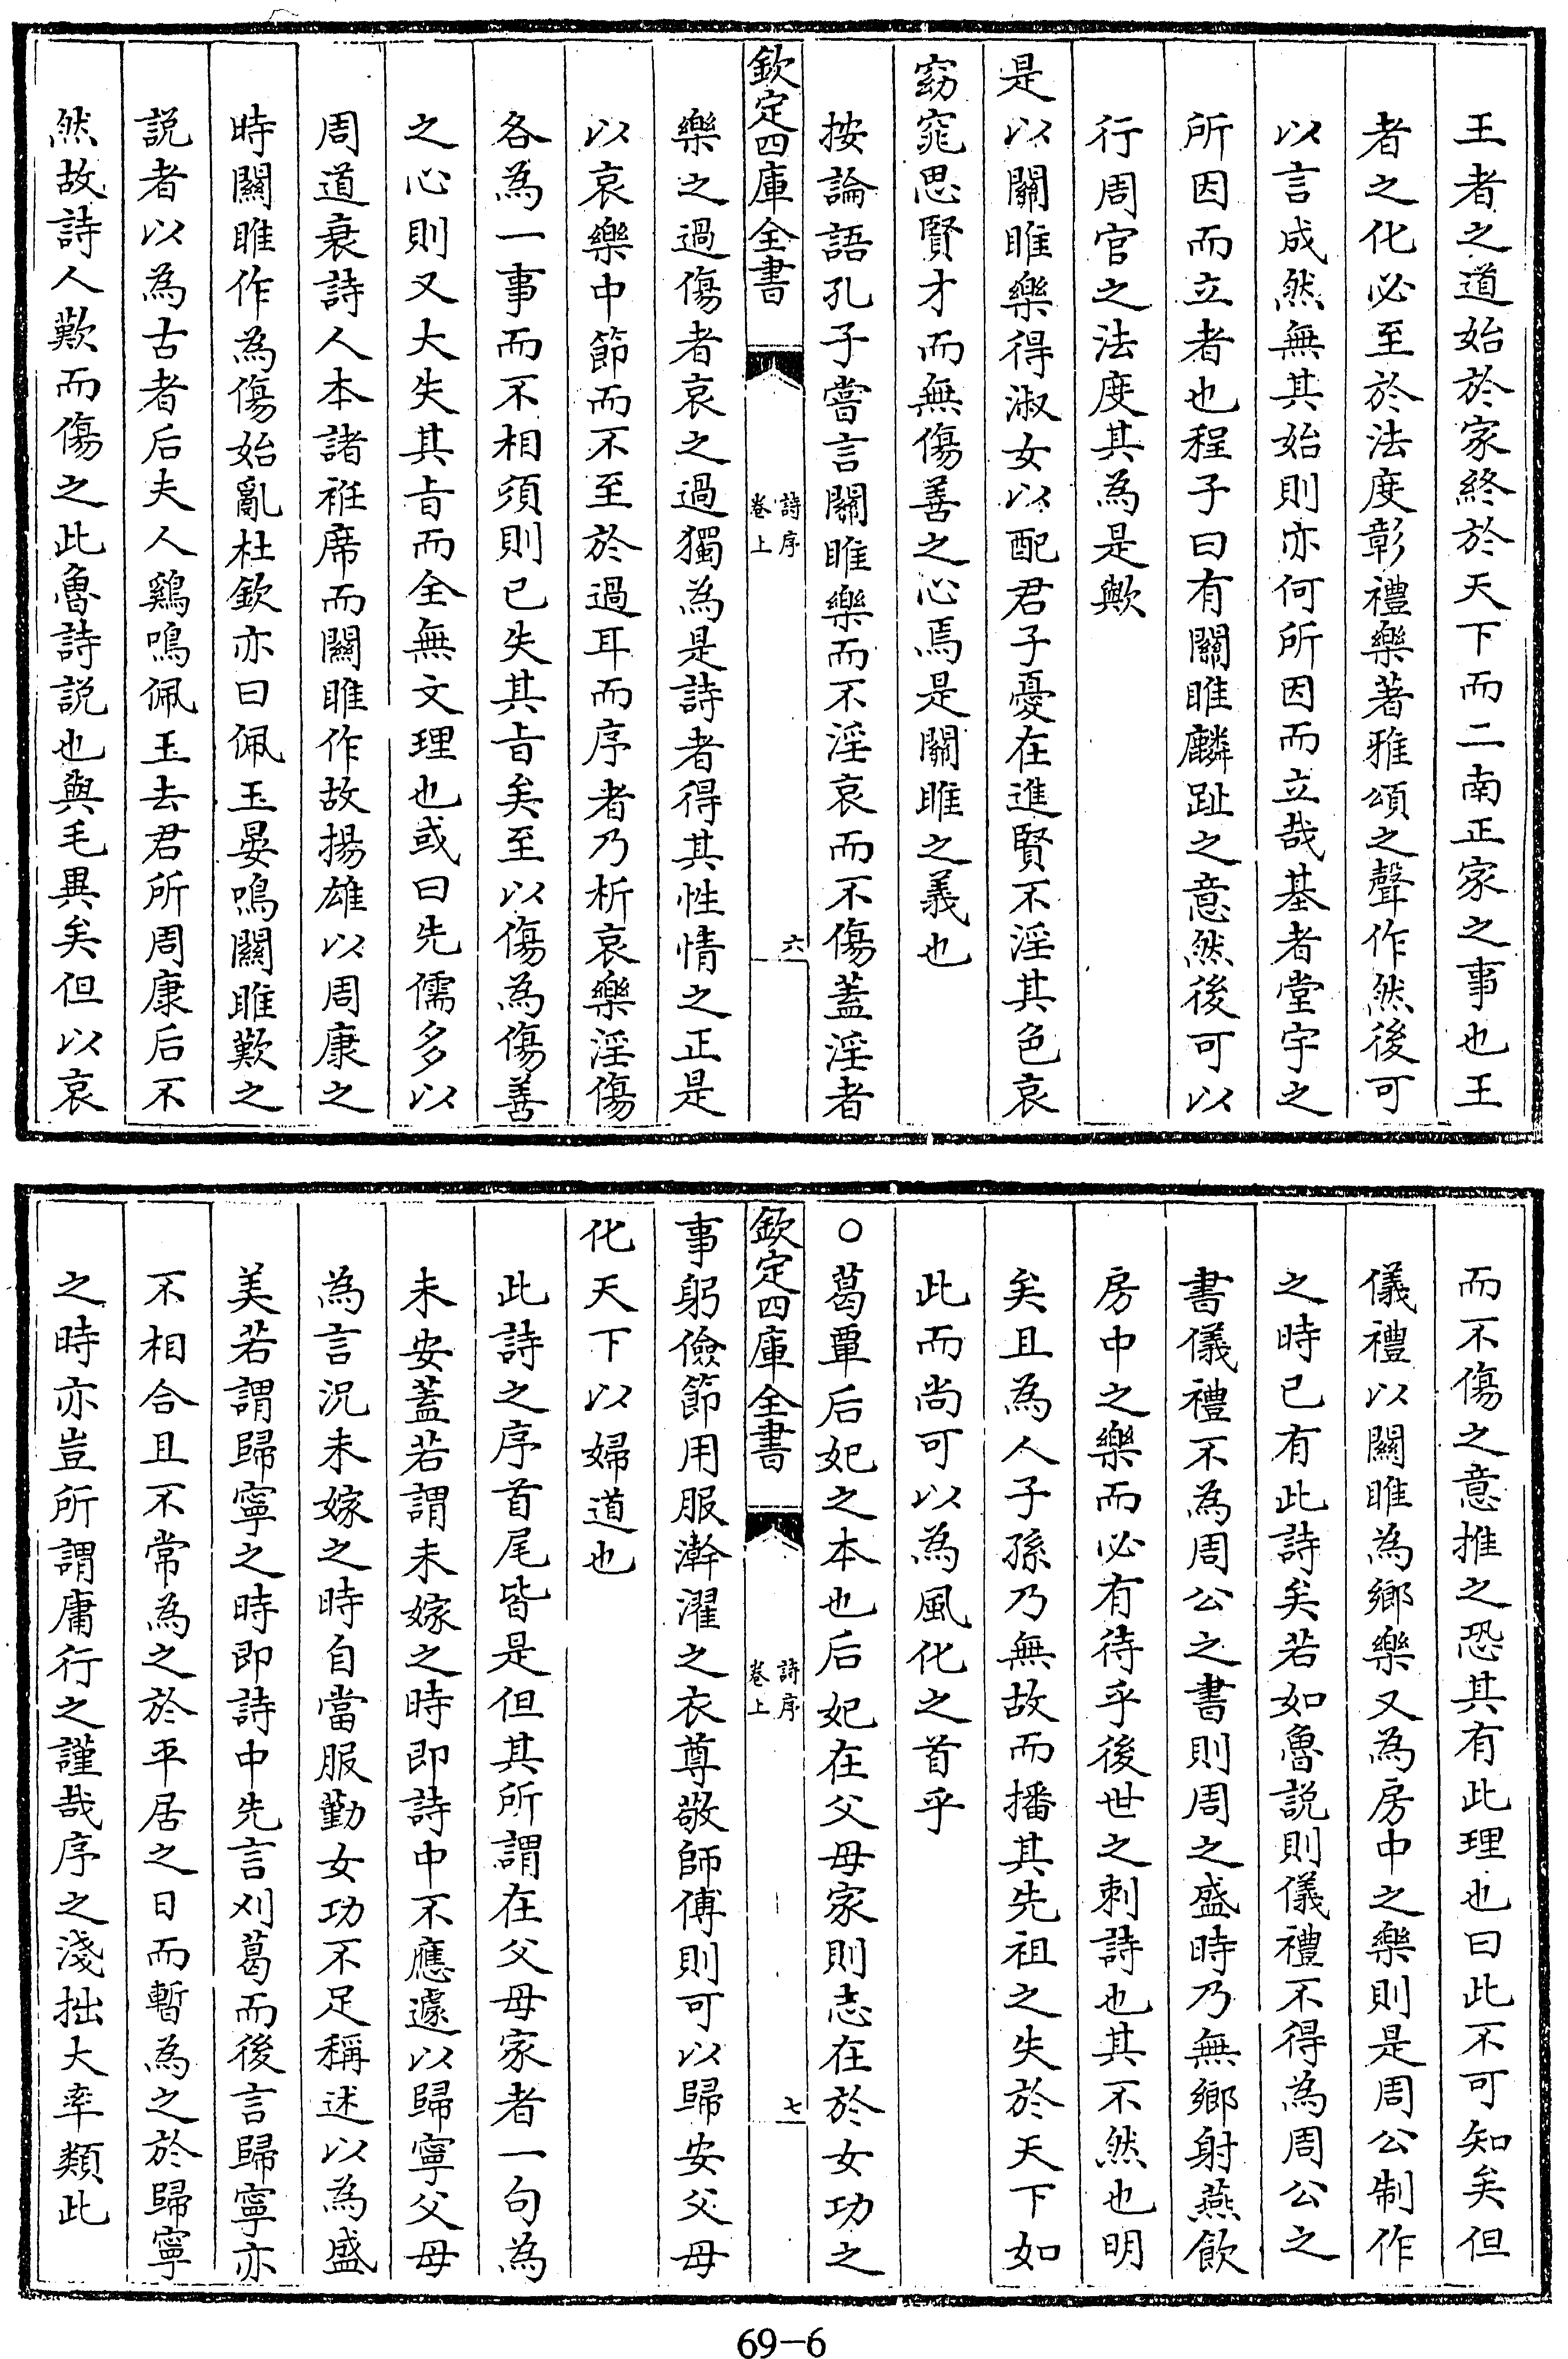 王者之道始於家終於天下而二南正家之事也王
者之化必至於法度彰禮樂著雅頌之聲作然後可
以言成然無其始則亦何所因而立哉基者堂宇之
所因而立者也程子曰有關雎麟趾之意然後可以
行周官之法度其為是歟
是以關雎樂得淑女以配君子憂在進賢不淫其色哀
窈窕思賢才而無傷善之心焉是關雎之義也
按論語孔子嘗言關雎樂而不淫哀而不傷蓋淫者
欽定四庫全書
詩序
卷上
六
樂之過傷者哀之過獨為是詩者得其性情之正是
以哀樂中節而不至於過耳而序者乃析哀樂淫傷
各為一事而不相須則已失其旨矣至以傷為傷善
之心則又大失其旨而全無文理也或曰先儒多以
周道衰詩人本諸袵席而關雎作故揚雄以周康之
時關雎作為傷始亂杜欽亦曰佩玉晏鳴關雎歎之
說者以為古者后夫人鷄鳴佩玉去君所周康后不
然故詩人歎而傷之此魯詩說也與毛異矣但以哀
而不傷之意推之恐其有此理也曰此不可知矣但
儀禮以關雎為鄉樂又為房中之樂則是周公制作
之時已有此詩矣若如魯說則儀禮不得為周公之
書儀禮不為周公之書則周之盛時乃無鄉射燕飲
房中之樂而必有待乎後世之刺詩也其不然也明
矣且為人子孫乃無故而播其先祖之失於天下如
此而尚可以為風化之首乎
○葛覃后妃之本也后妃在父母家則志在於女功之
欽定四庫全書
詩序
卷上
七
事躬儉節用服澣濯之衣尊敬師傅則可以歸安父母
化天下以婦道也
此詩之序首尾皆是但其所謂在父母家者一句為
未安蓋若謂未嫁之時即詩中不應遽以歸寧父母
為言況未嫁之時自當服勤女功不足稱述以為盛
美若謂歸寧之時即詩中先言刈葛而後言歸寧亦
不相合且不常為之於平居之日而暫為之於歸寧
之時亦豈所謂庸行之謹哉序之淺拙大率類此
69-6